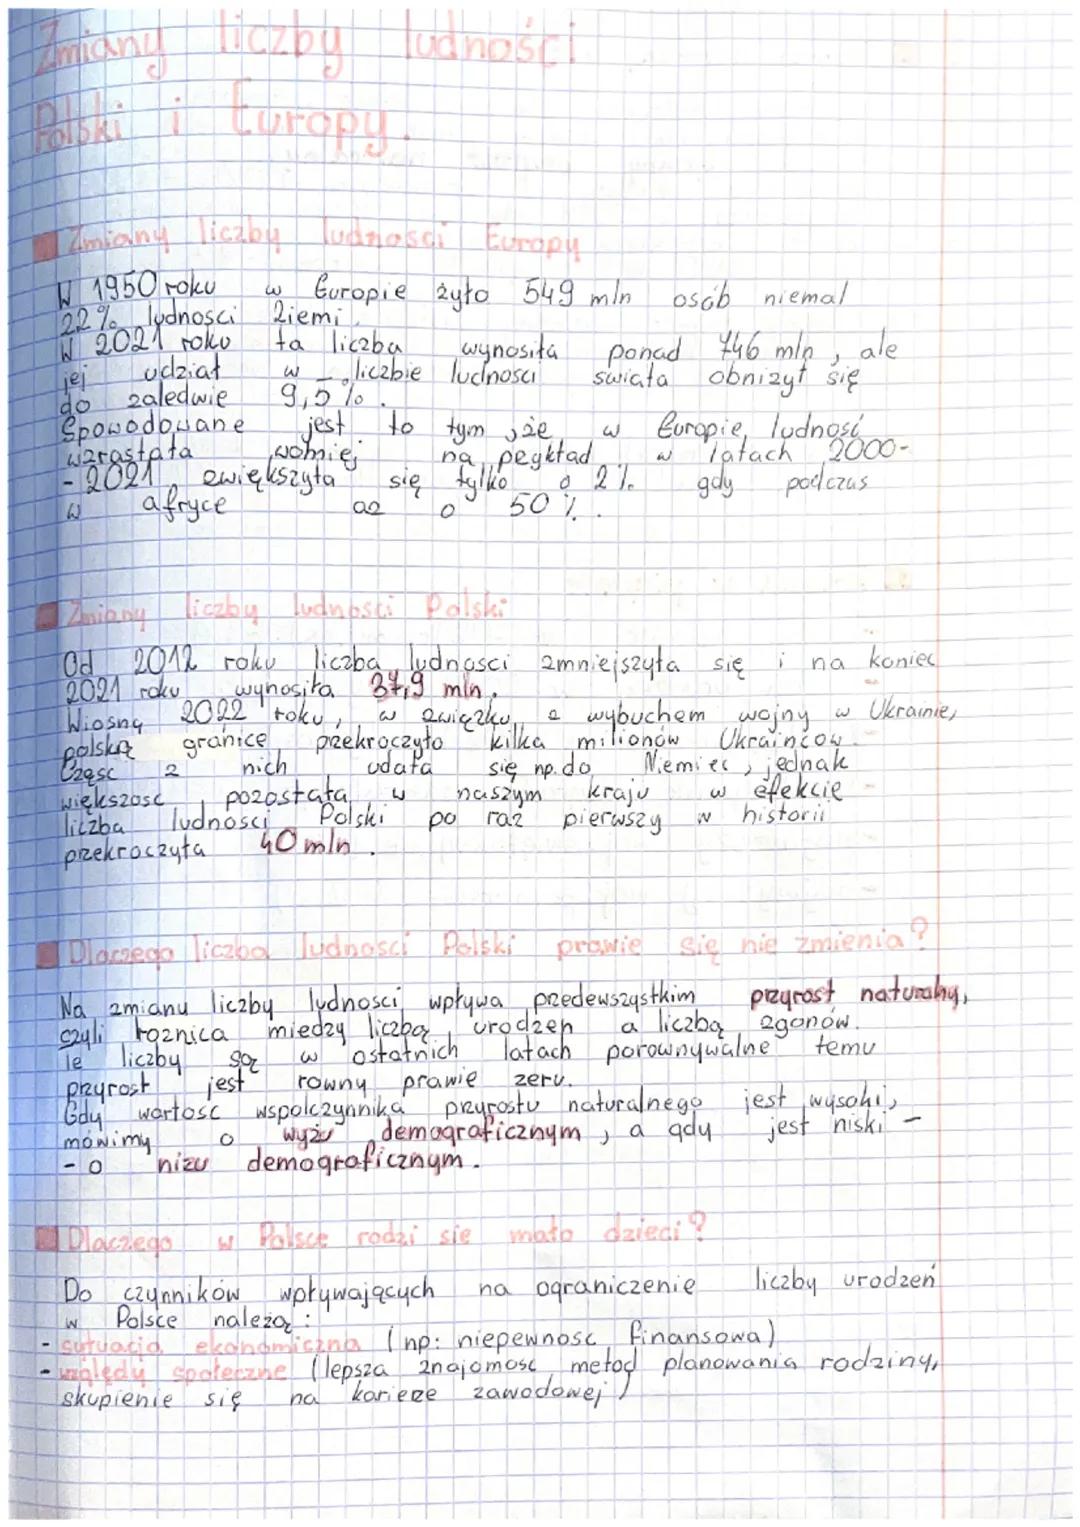 Zmiany liczby ludności
Polski i Europy.
Zmiany liczby ludnosci Europy
W 1950 roku w Europie żyło 549 mln osób niemal
22% ludności Ziemi.
W 2021 roku ta liczba wynosiła ponad 746 mln, ale
jej udział w liczbie ludności świata obniżył się
do zaledwie 9,5%.
Spowodowane jest to tym, że w Europie ludność
wzrastała wolniej na pszykład w latach 2000-
-2021 zwiększyła się tylko o 2% gdy podczas
w afryce aż o 50%.
Zmiany liczby ludności Polski
Od 2012 roku liczba ludności zmniejszyła się i na koniec
2021 roku wynosiła 37,9 mln.
Wiosną 2022 roku, w związku z wybuchem wojny w Ukrainie,
polską granice przekroczyło kilka milionów Ukraińcow.
Częsc z nich udała się np. do Niemiec, jednak
większosc pozostała w naszym kraju w efekcie
liczba ludności Polski po raz pierwszy w historii
przekroczyła 40 mln.
Dlaczego liczba ludnosci Polski prawie się nie zmienia?
Na zmianu liczby ludnosci wpływa przedewszystkim przyrost naturalny,
czyli roznica miedzy liczbą urodzen a liczbą zgonów.
Te liczby są w ostatnich latach porownywalne temu
przyrost jest rowny prawie zeru.
Gdy wartosc wspolczynnika przyrostu naturalnego jest wysoki,
mówimy o wyżu demograficznym, a gdy jest niski -
- o nizu demograficznym.
Dlaczego w Polsce rodzi sie mało dzieci?
Do czynników wpływających na ograniczenie liczby urodzeń
w Polsce należą:
- sytuacja ekonomiczna (np: niepewnosc finansowa)
- względy społeczne (lepsza znajomosc metod planowania rodziny,
skupienie się na karierze zawodowej)